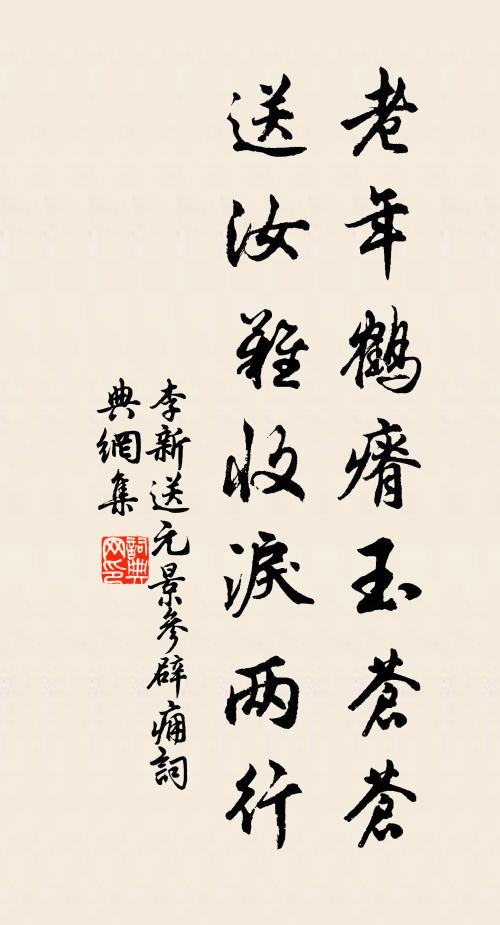 老年鶴瘠玉蒼蒼
送汝難收淚两行
李新送元景參辟痈詞
典網集
詞典网印